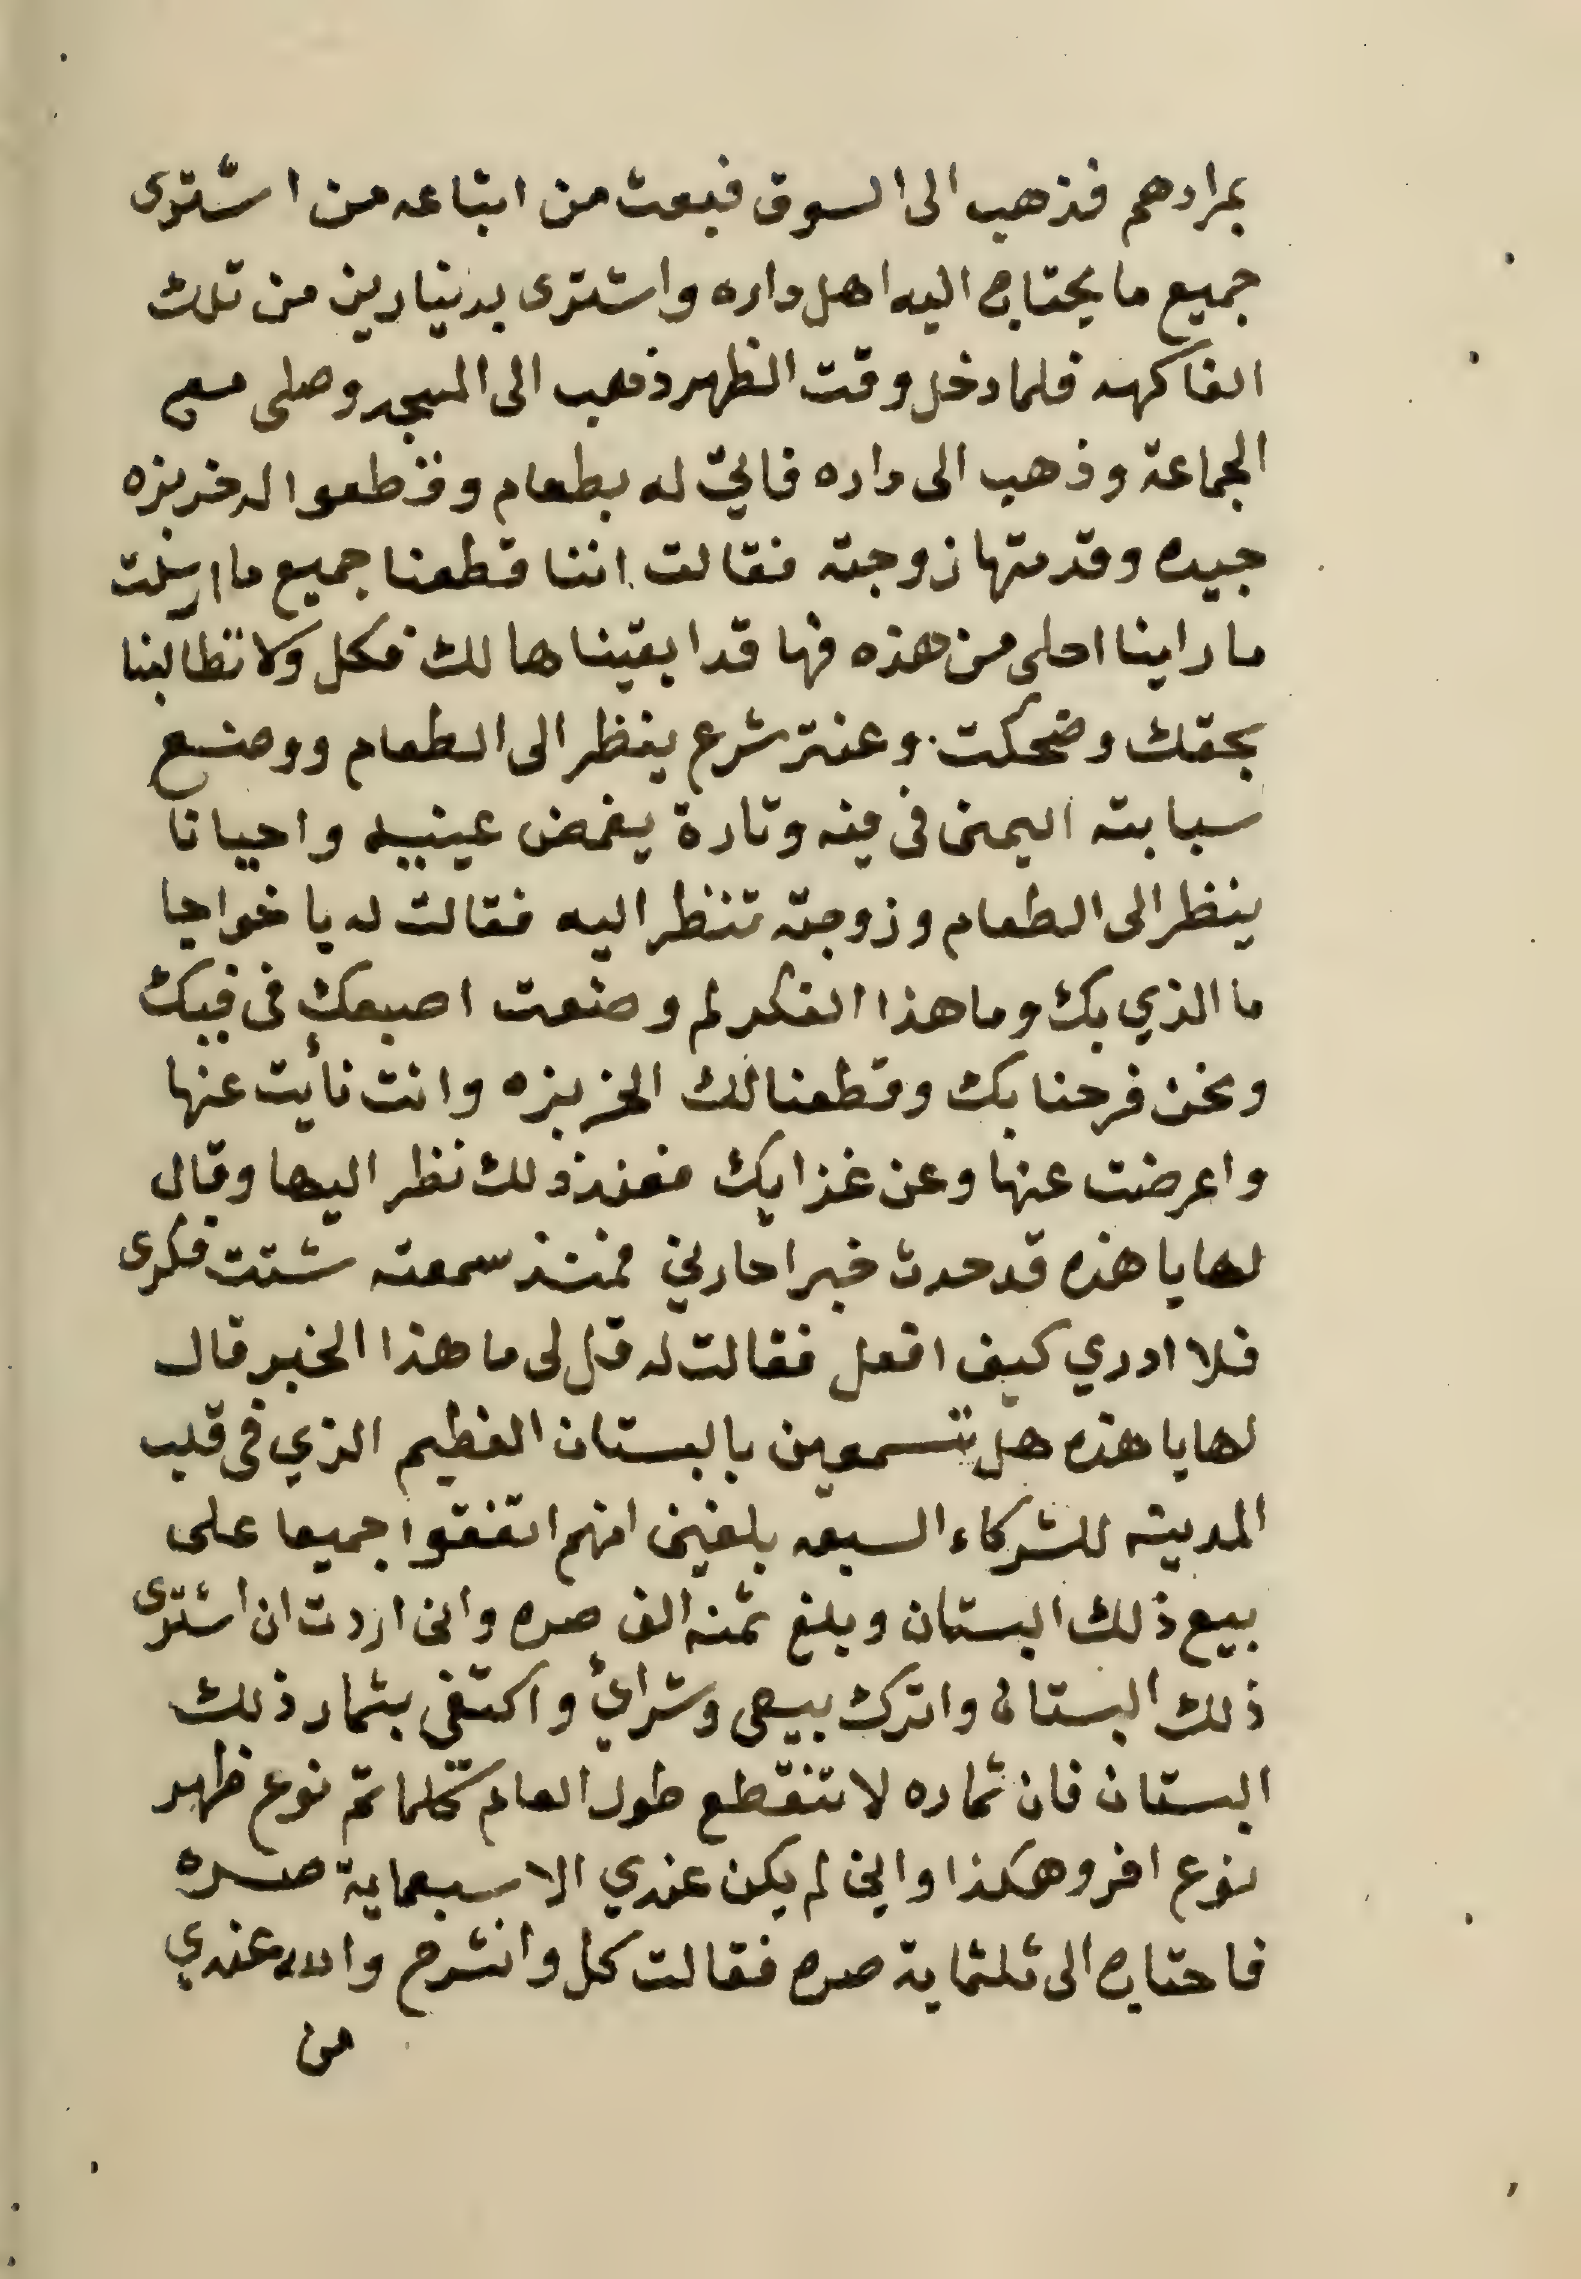 بمرادهم فذهب الى السوق فبعث من ابتاعه من اشترى
جميع ما يحتاج اليه اهل داره واشترى بدينارين من تلك
الفاكهه فلما دخل وقت الظهر ذهب الى المسجد وصلى مع
الجماعة وذهب الى داره فاتي له بطعام وقطعوا له خربزه
جيده وقدمتها زوجته فقالت اننا قطعنا جميع ما ارسلت
ما راينا احلى من هذه فها قد ابقيناها لك فكل ولا تطالبنا
بحقك وضحكت وعنتر شرع ينظر الى الطعام ووضع
سبابته اليمنى في فيه وتارة يغمض عينيه واحيانا
ينظر الى الطعام وزوجته تنظر اليه فقالت له يا خواجا
ما الذي بك وما هذا الفكر لم وضعت اصبعك في فيك
ونحن فرحنا بك وقطعنا لك الخربزه وانت نأيت عنها
واعرضت عنها وعن غذايك فعند ذلك نظر اليها وقال
لها يا هذه قد حدث خبر احارني فمنذ سمعته شتت فكرى
فلا ادري كيف افعل فقالت له قل لى ما هذا الخبر قال
لها يا هذه هل تسمعين بالبستان العظيم الذي في قلب
المدينه للشركاء السبعه بلغني انهم اتفقوا جميعا على
بيع ذلك البستان وبلغ ثمنه الف صره واني اردت ان اشترى
ذلك البستان واترك بيعى وشرائي واكتفي بثمار ذلك
البستان فان ثماره لا تنقطع طول العام كلما تم نوع ظهر
نوع اخر وهكذا واني لم يكن عندي الا سبعماية صره
فاحتاج الى ثلثماية صره فقالت كل وانشرح والله عندي
من